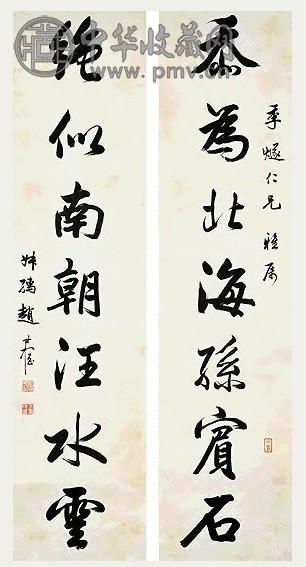 中华收藏网
www.pmv.cn
季燧仁兄雅属
忝為北海孫賓石
絶似南朝汪水雲
趙